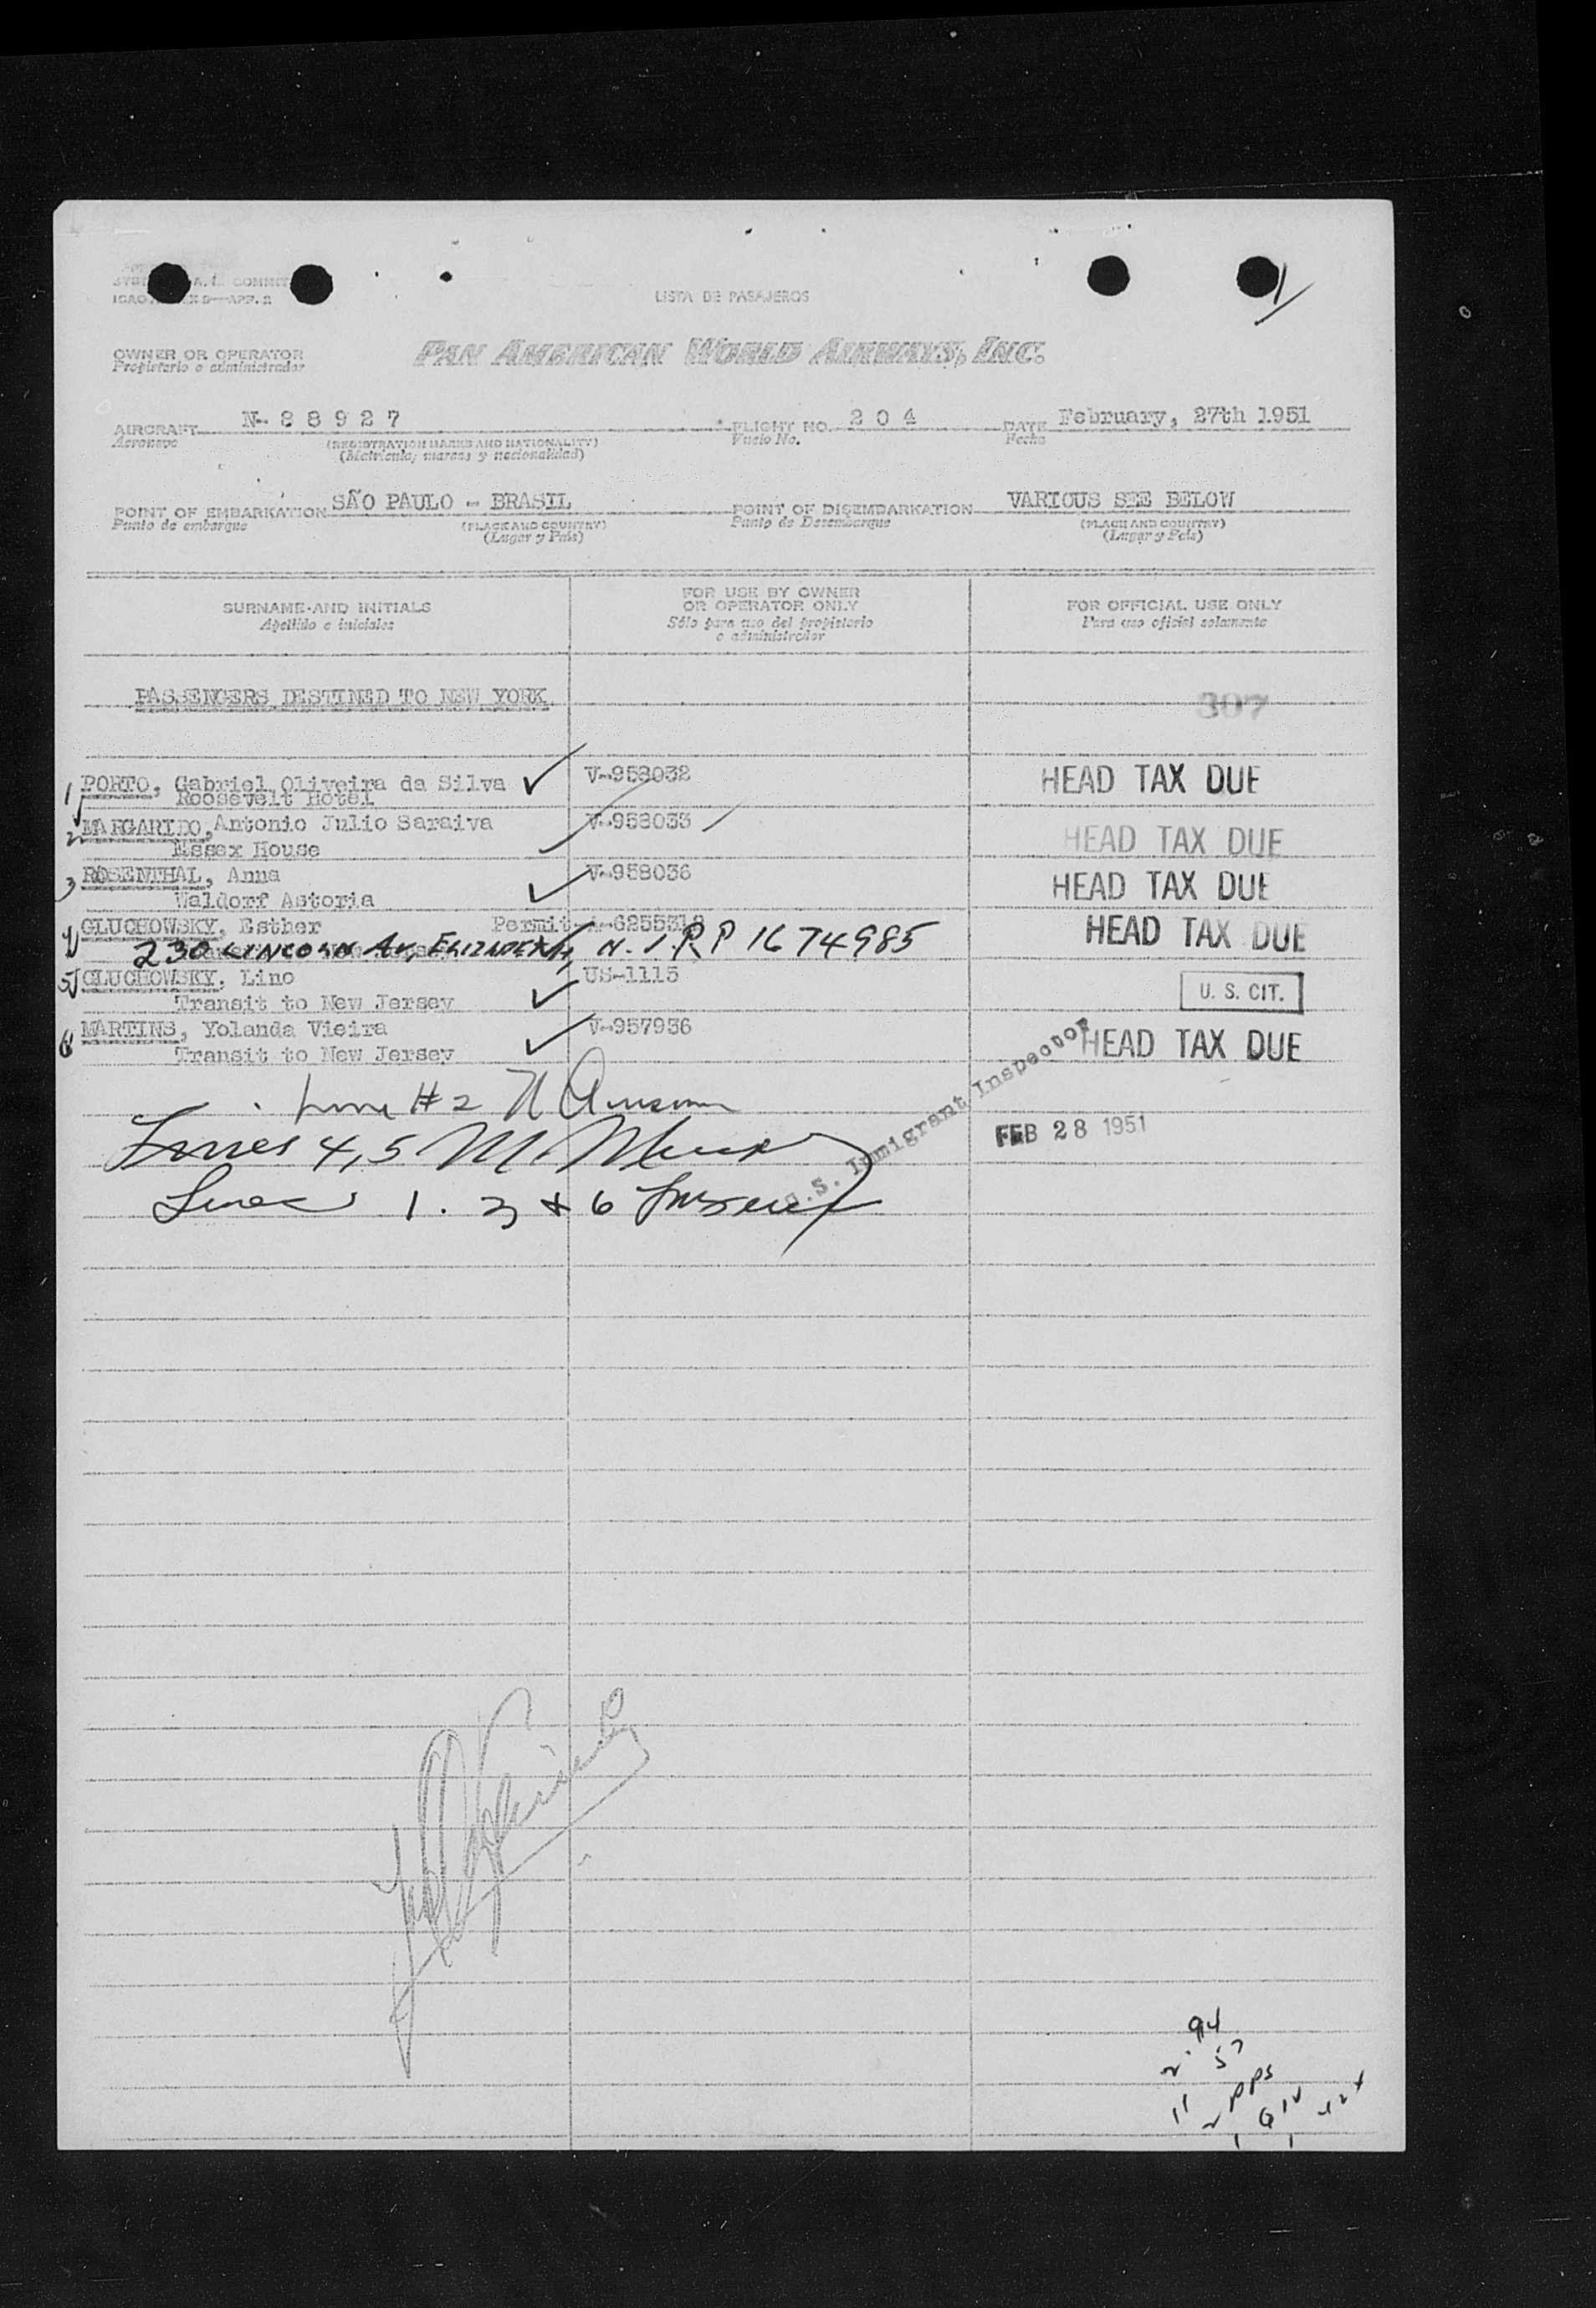 A.T. COMMIT
ICAO EX 9—APP. 2
LISTA DE PASAJEROS
1
OWNER OR OPERATOR
Propietario o administrador
PAN AMERICAN WORLD AIRWAYS, INC.
AIRCRAFT N-88927 FLIGHT NO. 204 DATE February, 27th 1951
Aeronave (REGISTRATION MARKS AND NATIONALITY) Vuelo No. Fecha
(Matricula, marcas y nacionalidad)
POINT OF EMBARKATION SÃO PAULO - BRASIL POINT OF DISEMBARKATION VARIOUS SEE BELOW
Punto de embarque (PLACE AND COUNTRY) Punto de Desembarque (PLACE AND COUNTRY)
(Lugar y País) (Lugar y País)
SURNAME AND INITIALS
Apellido e iniciales
FOR USE BY OWNER
OR OPERATOR ONLY
Sólo para uso del propietario
o administrador
FOR OFFICIAL USE ONLY
Para uso oficial solamente
PASSENGERS DESTINED TO NEW YORK 307
1 PORTO, Gabriel Oliveira da Silva V-958032 HEAD TAX DUE
Roosevelt Hotel
2 MARGARIDO, Antonio Julio Saraiva V-958033 HEAD TAX DUE
Essex House
3 ROSENTHAL, Anna V-958036 HEAD TAX DUE
Waldorf Astoria
4 GLUCHOWSKY, Esther Permit A-6255318 HEAD TAX DUE
230 LINCOLN AV, ELIZABETH, N. J. RP 1674985
5 GLUCHOWSKY, Lino US-1115 U. S. CIT.
Transit to New Jersey
6 MARTINS, Yolanda Vieira V-957936 HEAD TAX DUE
Transit to New Jersey
Line #2
Lines 4, 5 M.
U.S. Immigrant Inspector
FEB 28 1951
Lines 1. 3 & 6
94
57
PPS
11